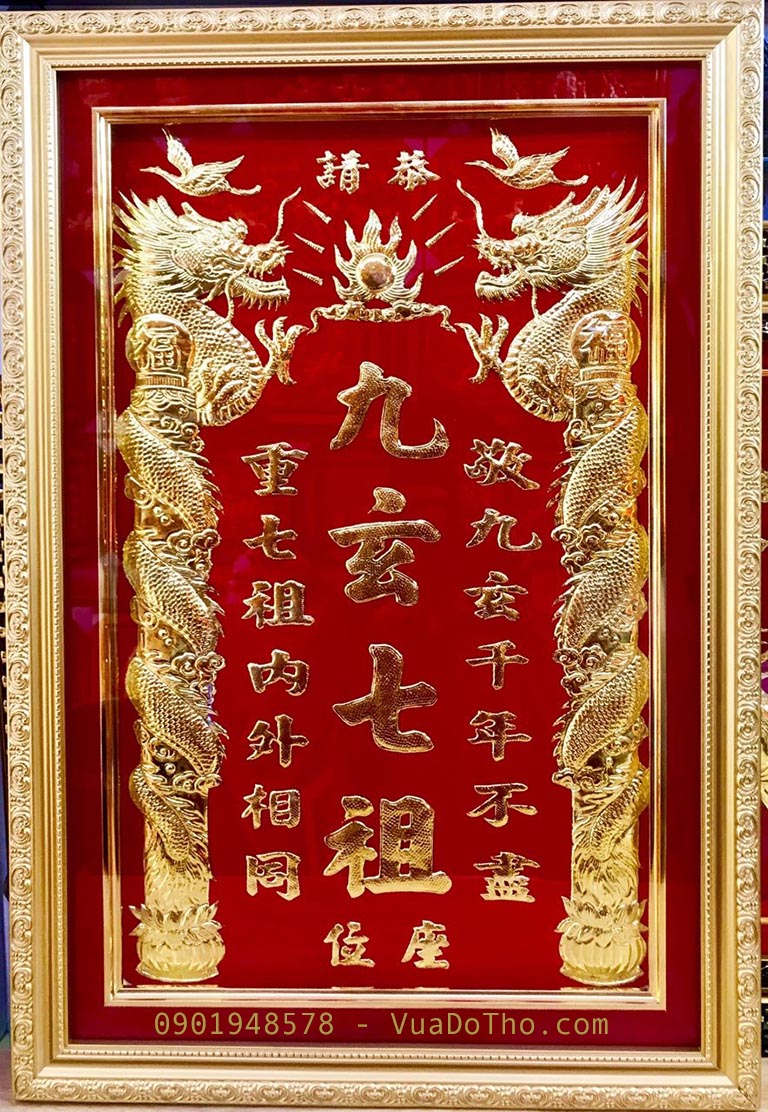 恭請
福
福
敬九玄千年不盡
九玄七祖
重七祖内外相同
座位
0901948578 - VuaDoTho.com